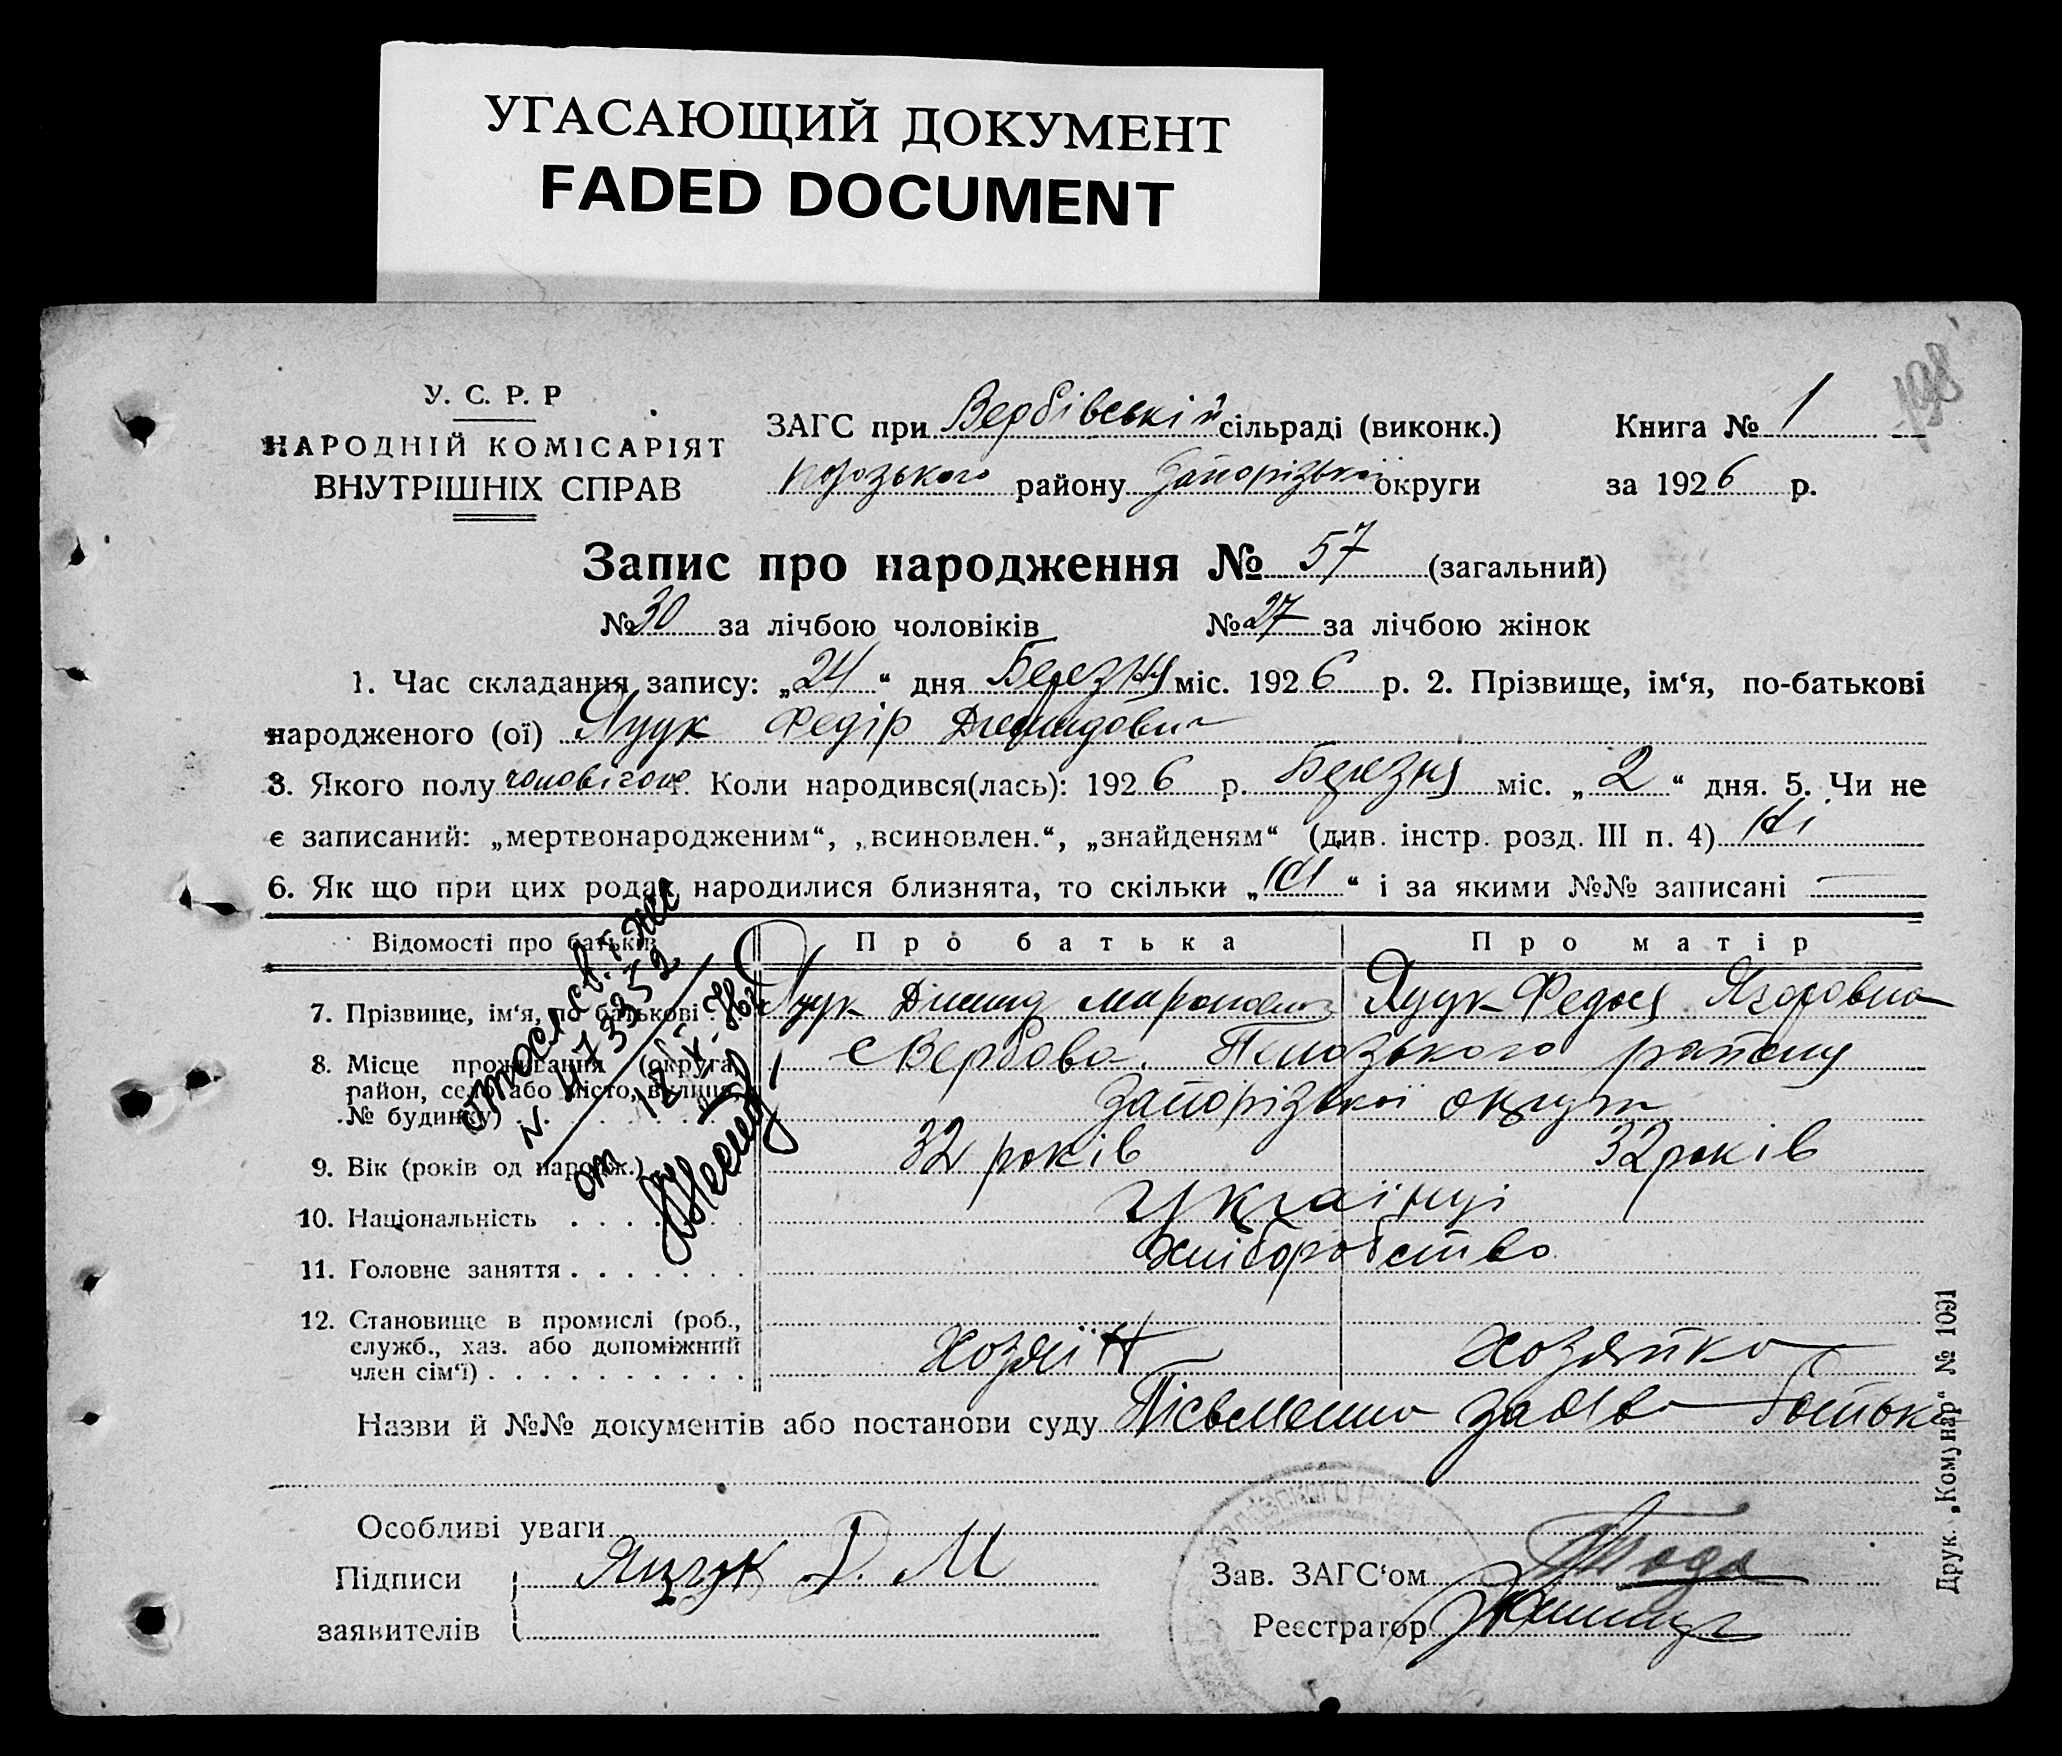 УГАСАЮЩИЙ ДОКУМЕНТ
FADED DOCUMENT
198
У. С. Р. Р
НАРОДНІЙ КОМІСАРІЯТ
ВНУТРІШНІХ СПРАВ
ЗАГС при Вербівській сільраді (виконк.)
району Запорізької округи
Книга № 1
за 1926 р.
Запис про народження № 57 (загальний)
№ 30 за лічбою чоловіків № 27 за лічбою жінок
1. Час складання запису: „24“ дня Березня міс. 1926 р. 2. Прізвище, ім‘я, по-батькові
народженого (ої) Яцук Федір
3. Якого полу чоловічого. Коли народився(лась): 1926 р. Березня міс. „2“ дня. 5. Чи не
є записаний: „мертвонародженим“, „всиновлен.“, „знайденям“ (див. інстр. розд. III п. 4) Ні
6. Як що при цих родах народилися близнята, то скільки „Ні“ і за якими №№ записані —
Відомості про батьків Про батька Про матір
7. Прізвище, ім‘я, по батькові Яцук Яцук Федося Ягоровна
8. Місце проживання (округа,
район, село або місто, вулиця,
№ будинку)
с Вербова. району
Запорізької округи
9. Вік (років од народж.) 32 років 32 років
10. Національність Українці
11. Головне заняття Хліборобство
12. Становище в промислі (роб.,
служб., хаз. або допоміжний
член сім‘ї)
Хозяїн Хозяйка
Назви й №№ документів або постанови суду Пісьменна заява батька
Особливі уваги
Підписи
заявителів
Яцук Д. М
Зав. ЗАГС‘ом
Реєстратор
Друк. „Комунар“ № 1091